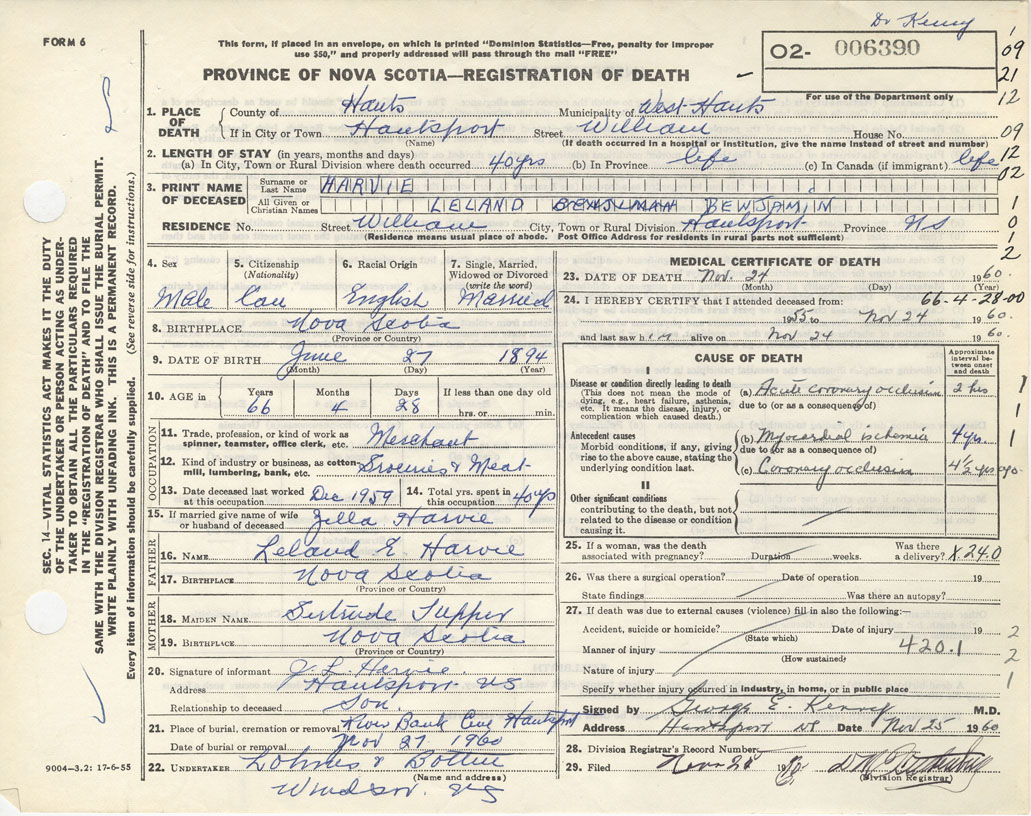 Dr Kenny
FORM 6
This form, if placed in an envelope, on which is printed "Dominion Statistics—Free, penalty for improper
use $50," and properly addressed will pass through the mail "FREE"
O2- 006390
PROVINCE OF NOVA SCOTIA—REGISTRATION OF DEATH
For use of the Department only
1
09
21
12
09
12
02
1
0
1
2
1. PLACE OF DEATH
County of Hants Municipality of West Hants
If in City or Town Hantsport Street William House No.
(Name) (If death occurred in a hospital or institution, give the name instead of street and number)
2. LENGTH OF STAY (in years, months and days)
(a) In City, Town or Rural Division where death occurred 40 yrs (b) In Province life (c) In Canada (if immigrant) life
3. PRINT NAME OF DECEASED
Surname or Last Name HARVIE
All Given or Christian Names LELAND BENJAMIN
RESIDENCE No. Street William City, Town or Rural Division Hantsport Province NS
(Residence means usual place of abode. Post Office Address for residents in rural parts not sufficient)
4. Sex Male
5. Citizenship (Nationality) Can
6. Racial Origin English
7. Single, Married, Widowed or Divorced (write the word) Married
8. BIRTHPLACE Nova Scotia
(Province or Country)
9. DATE OF BIRTH June 27 1894
(Month) (Day) (Year)
10. AGE in Years 66 Months 4 Days 28 If less than one day hrs. or min.
OCCUPATION
11. Trade, profession, or kind of work as spinner, teamster, office clerk, etc. Merchant
12. Kind of industry or business, as cotton mill, lumbering, bank, etc. Groceries & Meat
13. Date deceased last worked at this occupation Dec 1959
14. Total yrs. spent in this occupation 40 yrs
15. If married give name of wife or husband of deceased Zella Harvie
FATHER
16. NAME Leland E Harvie
17. BIRTHPLACE Nova Scotia
(Province or Country)
MOTHER
18. MAIDEN NAME Gertrude Tupper
19. BIRTHPLACE Nova Scotia
(Province or Country)
20. Signature of informant J. L. Harvie
Address Hantsport NS
Relationship to deceased Son
21. Place of burial, cremation or removal River Bank Cem Hantsport
Date of burial or removal Nov 27 1960
22. UNDERTAKER Lohnes &
(Name and address)
Windsor. NS
MEDICAL CERTIFICATE OF DEATH
23. DATE OF DEATH Nov. 24 1960.
(Month) (Day) (Year)
66-4-28-00
24. I HEREBY CERTIFY that I attended deceased from:
1955 to Nov 24 1960.
and last saw him alive on Nov 24 1960.
CAUSE OF DEATH
Approximate interval between onset and death
I
Disease or condition directly leading to death
(This does not mean the mode of dying, e.g., heart failure, asthenia, etc. It means the disease, injury, or complication which caused death.)
(a) Acute coronary occlusion 2 hrs
due to (or as a consequence of)
Antecedent causes
Morbid conditions, if any, giving rise to the above cause, stating the underlying condition last.
(b) Myocardial ischemia 4 yrs.
due to (or as a consequence of)
(c) Coronary occlusion 4½ yrs ago
II
Other significant conditions contributing to the death, but not related to the disease or condition causing it.
1
1
1
25. If a woman, was the death associated with pregnancy? Duration weeks. Was there a delivery? X240
26. Was there a surgical operation? Date of operation 19
State findings Was there an autopsy?
27. If death was due to external causes (violence) fill in also the following:—
Accident, suicide or homicide? Date of injury 19
(State which)
Manner of injury 420.1
(How sustained)
Nature of injury
Specify whether injury occurred in industry, in home, or in public place
2
2
1
Signed by George E. Kenny M.D.
Address Hantsport NS Date Nov 25 1960
28. Division Registrar's Record Number
29. Filed Nov 28 1960
(Division Registrar)
SEC. 14—VITAL STATISTICS ACT MAKES IT THE DUTY
OF THE UNDERTAKER OR PERSON ACTING AS UNDER-
TAKER TO OBTAIN ALL THE PARTICULARS REQUIRED
IN THE "REGISTRATION OF DEATH" AND TO FILE THE
SAME WITH THE DIVISION REGISTRAR WHO SHALL ISSUE THE BURIAL PERMIT.
WRITE PLAINLY WITH UNFADING INK. THIS IS A PERMANENT RECORD.
Every item of information should be carefully supplied. (See reverse side for instructions.)
9004-3.2: 17-6-55